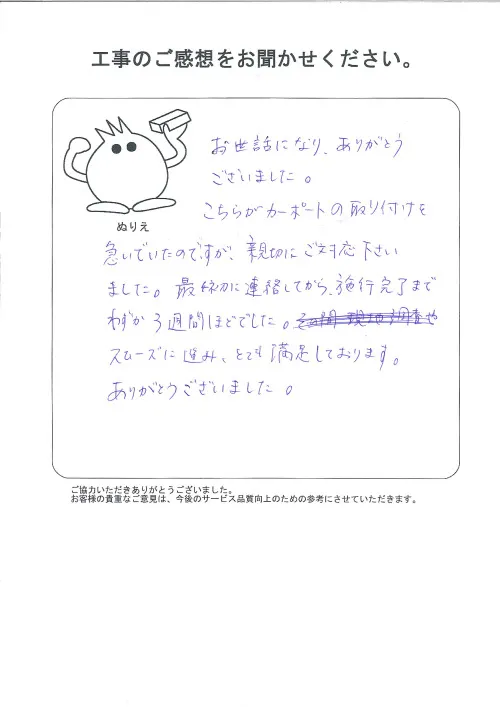 工事のご感想をお聞かせください。
ぬりえ
お世話になり、ありがとう
ございました。
こちらがカーポートの取り付けを
急いでいたのですが、親切にご対応下さい
ました。最初に連絡してから、施行完了まで
わずか3週間ほどでした。その間 現地調査や
スムーズに進み、とても満足しております。
ありがとうございました。
ご協力いただきありがとうございました。
お客様の貴重なご意見は、今後のサービス品質向上のための参考にさせていただきます。